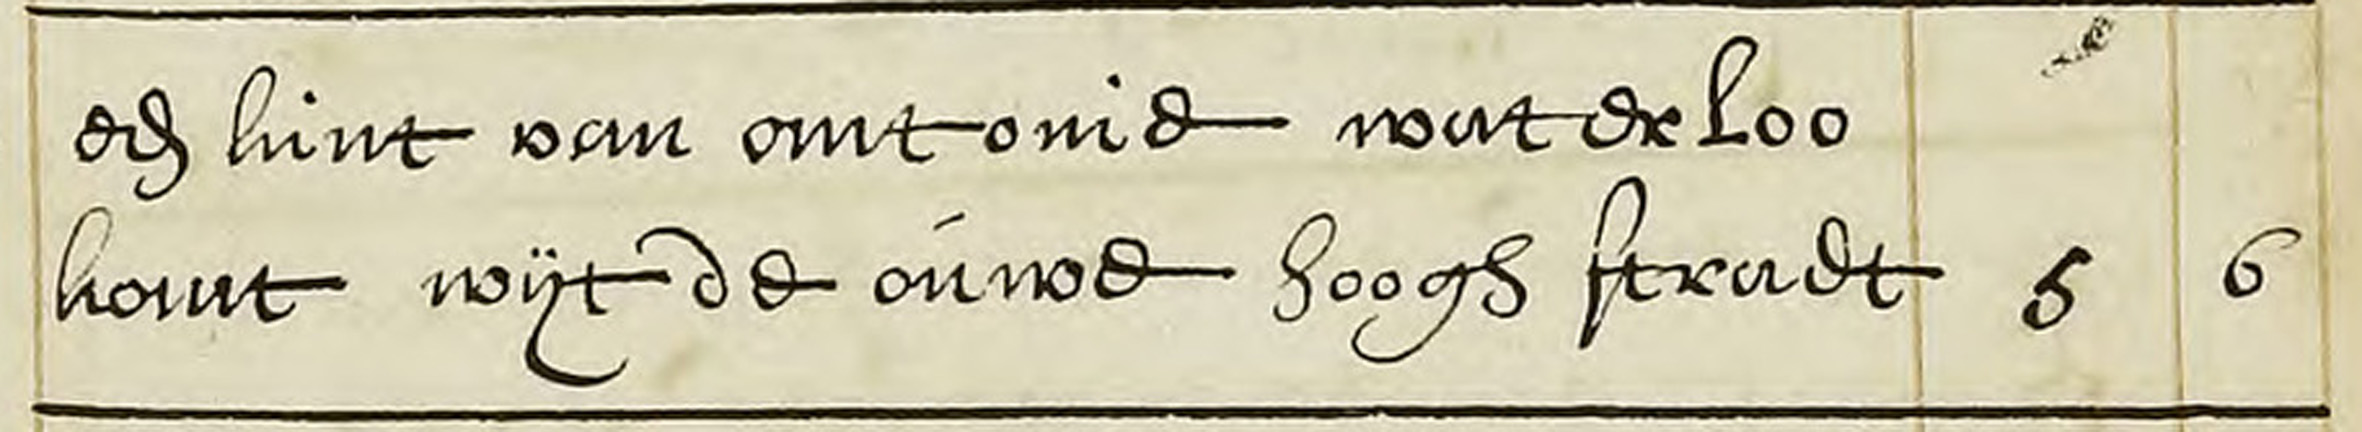 een kint van antonie waterloo
komt wÿt de ouwe hoogh straet 5 6